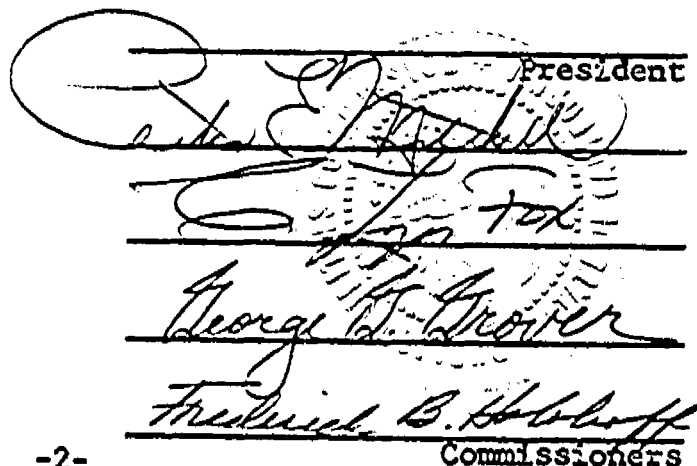 President
E. Mitchell
E. Lyn Fox
George G. Grover
Frederick B. Holoboff
-2-
Commissioners